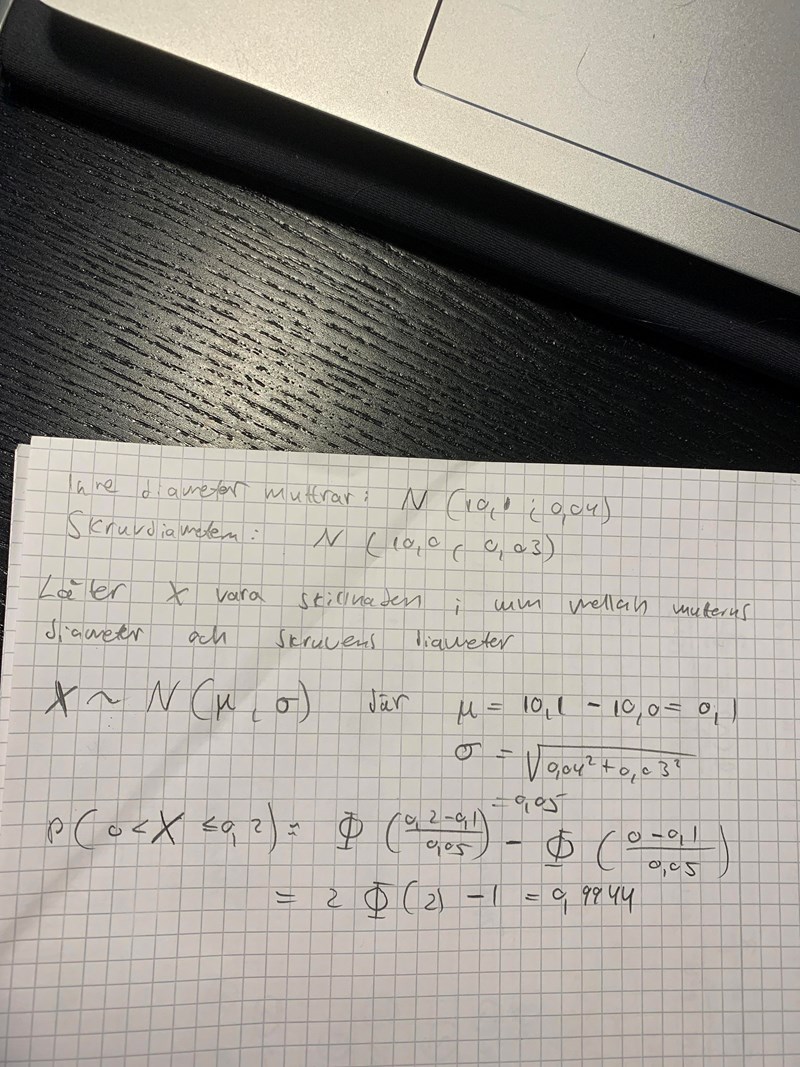 Inre diameter muttrar: N (10,1 ; 0,04)
Skruvdiametern: N (10,0 ; 0,03)
Låter X vara skillnaden i mm mellan mutterns
diameter och skruvens diameter
X ~ N(μ, σ) där μ = 10,1 - 10,0 = 0,1
σ = √(0,04² + 0,03²)
= 0,05
P(0 < X ≤ 0,2) = Φ((0,2-0,1)/0,05) - Φ((0-0,1)/0,05)
= 2 Φ(2) - 1 = 0,9944